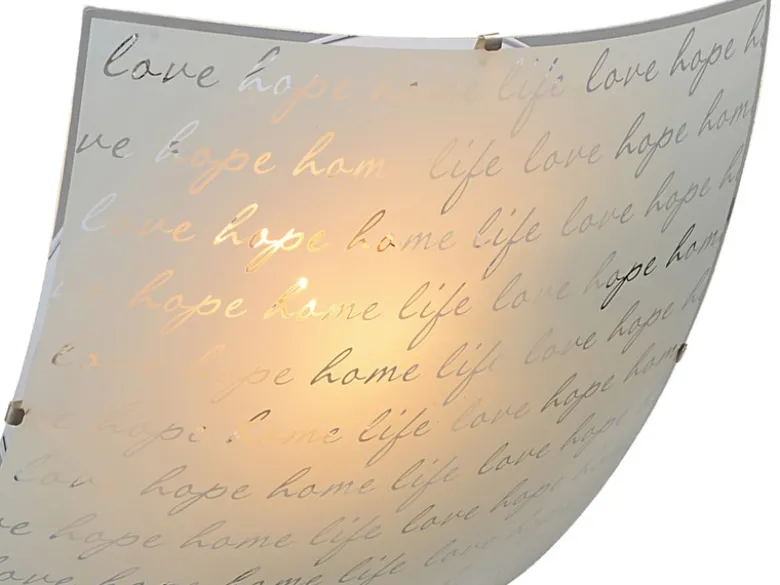 love hope home life love hope h
ve hope hom life love hope hom
love hope home life love hope h
hope home life love hope hom
pe home life love hope h
hope home life love hope hom
lov hope home life love hope
e hope home life love hope
love hope home life love